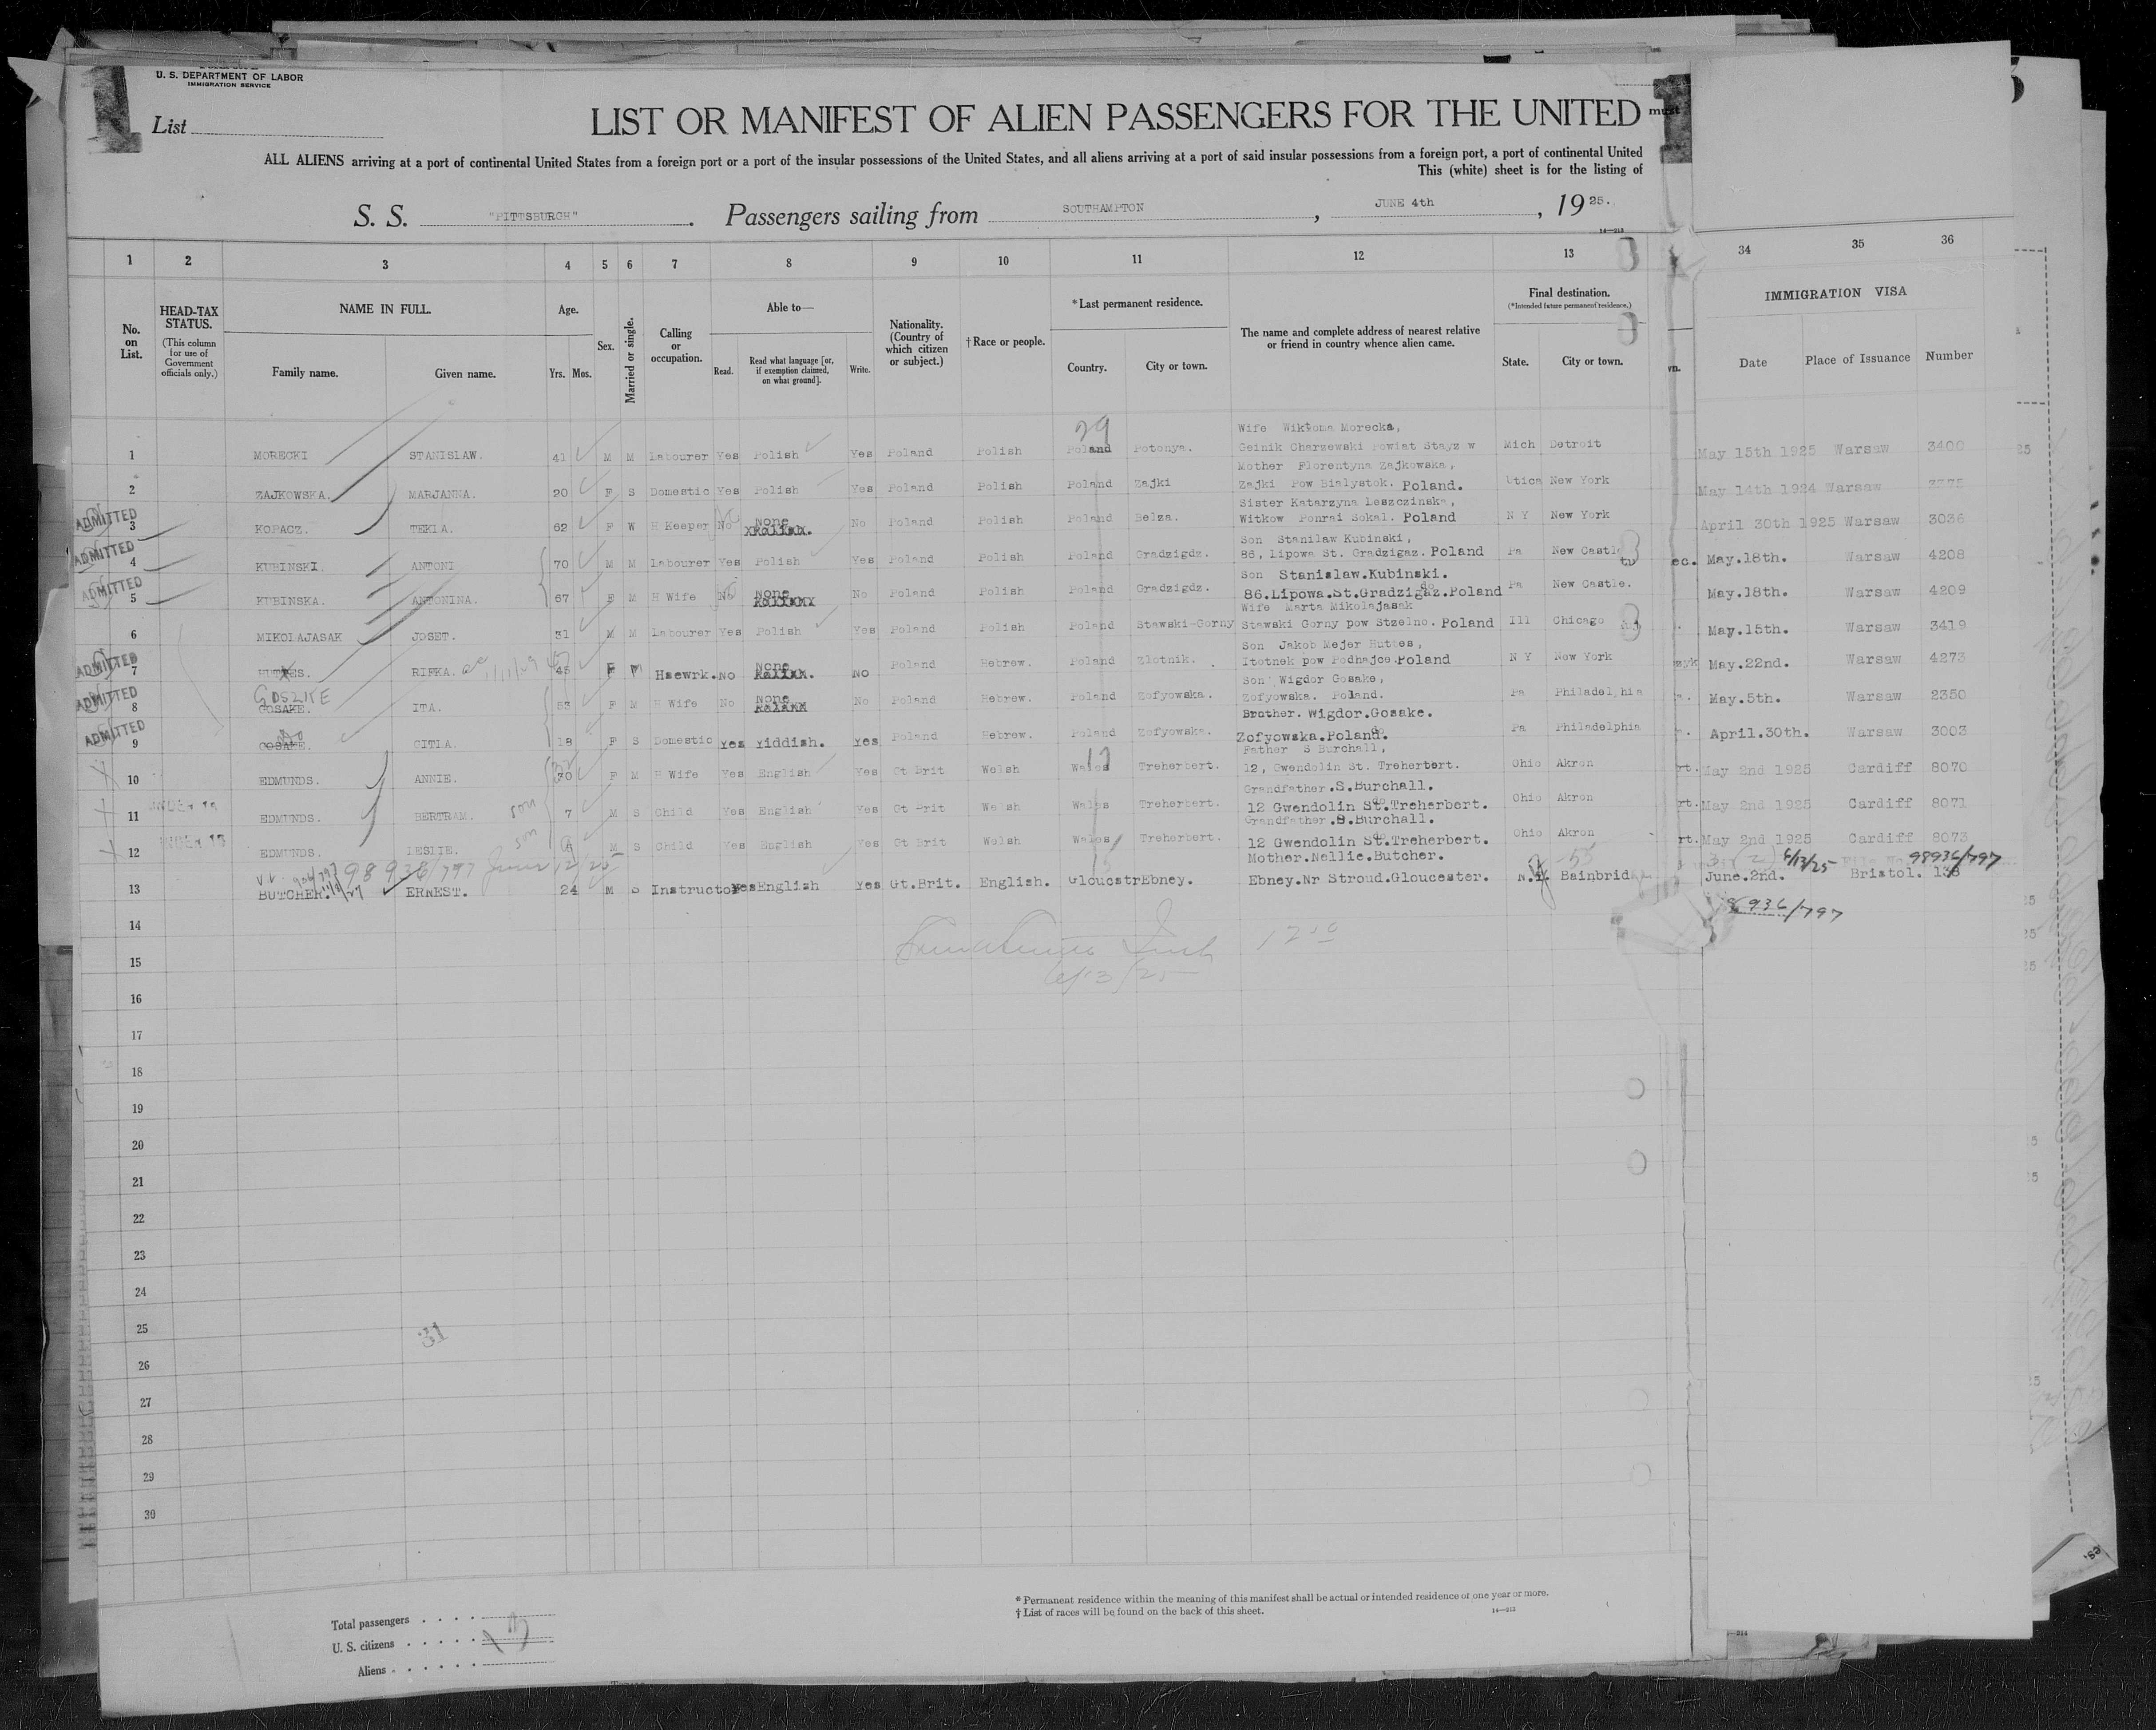 U. S. DEPARTMENT OF LABOR
IMMIGRATION SERVICE
List
LIST OR MANIFEST OF ALIEN PASSENGERS FOR THE UNITED
must
ALL ALIENS arriving at a port of continental United States from a foreign port or a port of the insular possessions of the United States, and all aliens arriving at a port of said insular possessions from a foreign port, a port of continental United
This (white) sheet is for the listing of
S. S. "PITTSBURGH". Passengers sailing from SOUTHAMPTON, JUNE 4th, 1925.
14—213
1 2 3 4 5 6 7 8 9 10 11 12 13 34 35 36
No. on List.
HEAD-TAX STATUS.
(This column for use of Government officials only.)
NAME IN FULL.
Family name. Given name.
Age.
Yrs. Mos.
Sex.
Married or single.
Calling or occupation.
Able to—
Read. Read what language [or, if exemption claimed, on what ground]. Write.
Nationality. (Country of which citizen or subject.)
† Race or people.
*Last permanent residence.
Country. City or town.
The name and complete address of nearest relative or friend in country whence alien came.
Final destination.
(*Intended future permanent residence.)
State. City or town.
IMMIGRATION VISA
Date Place of Issuance Number
29
Wife Wiktoma Morecka,
1 MORECKI STANISLAW. 41 M M Labourer Yes Polish Yes Poland Polish Poland Potonya. Geinik Charzewski Powiat Stayz w Mich Detroit May 15th 1925 Warsaw 3400
Mother Florentyna Zajkowska,
2 ZAJKOWSKA. MARJANNA. 20 F S Domestic Yes Polish Yes Poland Polish Poland Zajki Zajki Pow Bialystok. Poland. Utica New York May 14th 1924 Warsaw 3375
Sister Katarzyna Leszczinska,
ADMITTED 3 KOPACZ. TEKLA. 62 F W H Keeper No None No Poland Polish Poland Belza. Witkow Ponrai Sokal. Poland N Y New York April 30th 1925 Warsaw 3036
Son Stanilaw Kubinski,
ADMITTED 4 KUBINSKI. ANTONI 70 M M Labourer Yes Polish Yes Poland Polish Poland Gradzigdz. 86, Lipowa St. Gradzigaz. Poland Pa New Castle ec. May.18th. Warsaw 4208
Son Stanislaw.Kubinski.
ADMITTED 5 KUBINSKA. ANTONINA. 67 F M H Wife No None No Poland Polish Poland Gradzigdz. 86.Lipowa.St.Gradzigaz.Poland Pa New Castle. May.18th. Warsaw 4209
Wife Marta Mikolajasak
6 MIKOLAJASAK JOSET. 31 M M Labourer Yes Polish Yes Poland Polish Poland Stawski-Gorny Stawski Gorny pow Stzelno. Poland Ill Chicago May.15th. Warsaw 3419
Son Jakob Mejer Huttes,
ADMITTED 7 RIFKA. 45 F M Hsewrk. No None No Poland Hebrew. Poland Zlotnik. Itotnek pow Podhajce.Poland N Y New York zyk May.22nd. Warsaw 4273
Son Wigdor Gosake,
GOSLIKE
ADMITTED 8 GOSAKE. ITA. 53 F M H Wife No None No Poland Hebrew. Poland Zofyowska. Zofyowska. Poland. Pa Philadelphia a. May.5th. Warsaw 2350
Brother. Wigdor.Gosake.
do
ADMITTED 9 GOSAKE. GITLA. 18 F S Domestic Yes Yiddish. Yes Poland Hebrew. Poland Zofyowska. Zofyowska.Poland. Pa Philadelphia April.30th. Warsaw 3003
Father S Burchall,
10 EDMUNDS. ANNIE. 30 F M H Wife Yes English Yes Gt Brit Welsh Wales Treherbert. 12, Gwendolin St. Treherbert. Ohio Akron rt. May 2nd 1925 Cardiff 8070
Grandfather.S.Burchall.
11 UNDER 16 EDMUNDS. BERTRAM. son 7 M S Child Yes English Yes Gt Brit Welsh Wales Treherbert. 12 Gwendolin St.Treherbert. Ohio Akron rt. May 2nd 1925 Cardiff 8071
Grandfather.S.Burchall.
12 UNDER 16 EDMUNDS. LESLIE. son 6 M S Child Yes English Yes Gt Brit Welsh Wales Treherbert. 12 Gwendolin St.Treherbert. Ohio Akron rt. May 2nd 1925 Cardiff 8073
98936/797 June 12/25
Mother.Nellie.Butcher.
6/13/25 98936/797
13 BUTCHER. ERNEST. 24 M S Instructor Yes English Yes Gt.Brit. English. Gloucstr Ebney. Ebney.Nr Stroud.Gloucester. N.Y. Bainbrid June.2nd. Bristol. 138
936/797
14
15
6/13/25
16
17
18
19
20
21
22
23
24
25
31
26
27
28
29
30
Total passengers
U. S. citizens
Aliens
* Permanent residence within the meaning of this manifest shall be actual or intended residence of one year or more.
† List of races will be found on the back of this sheet.
14—213